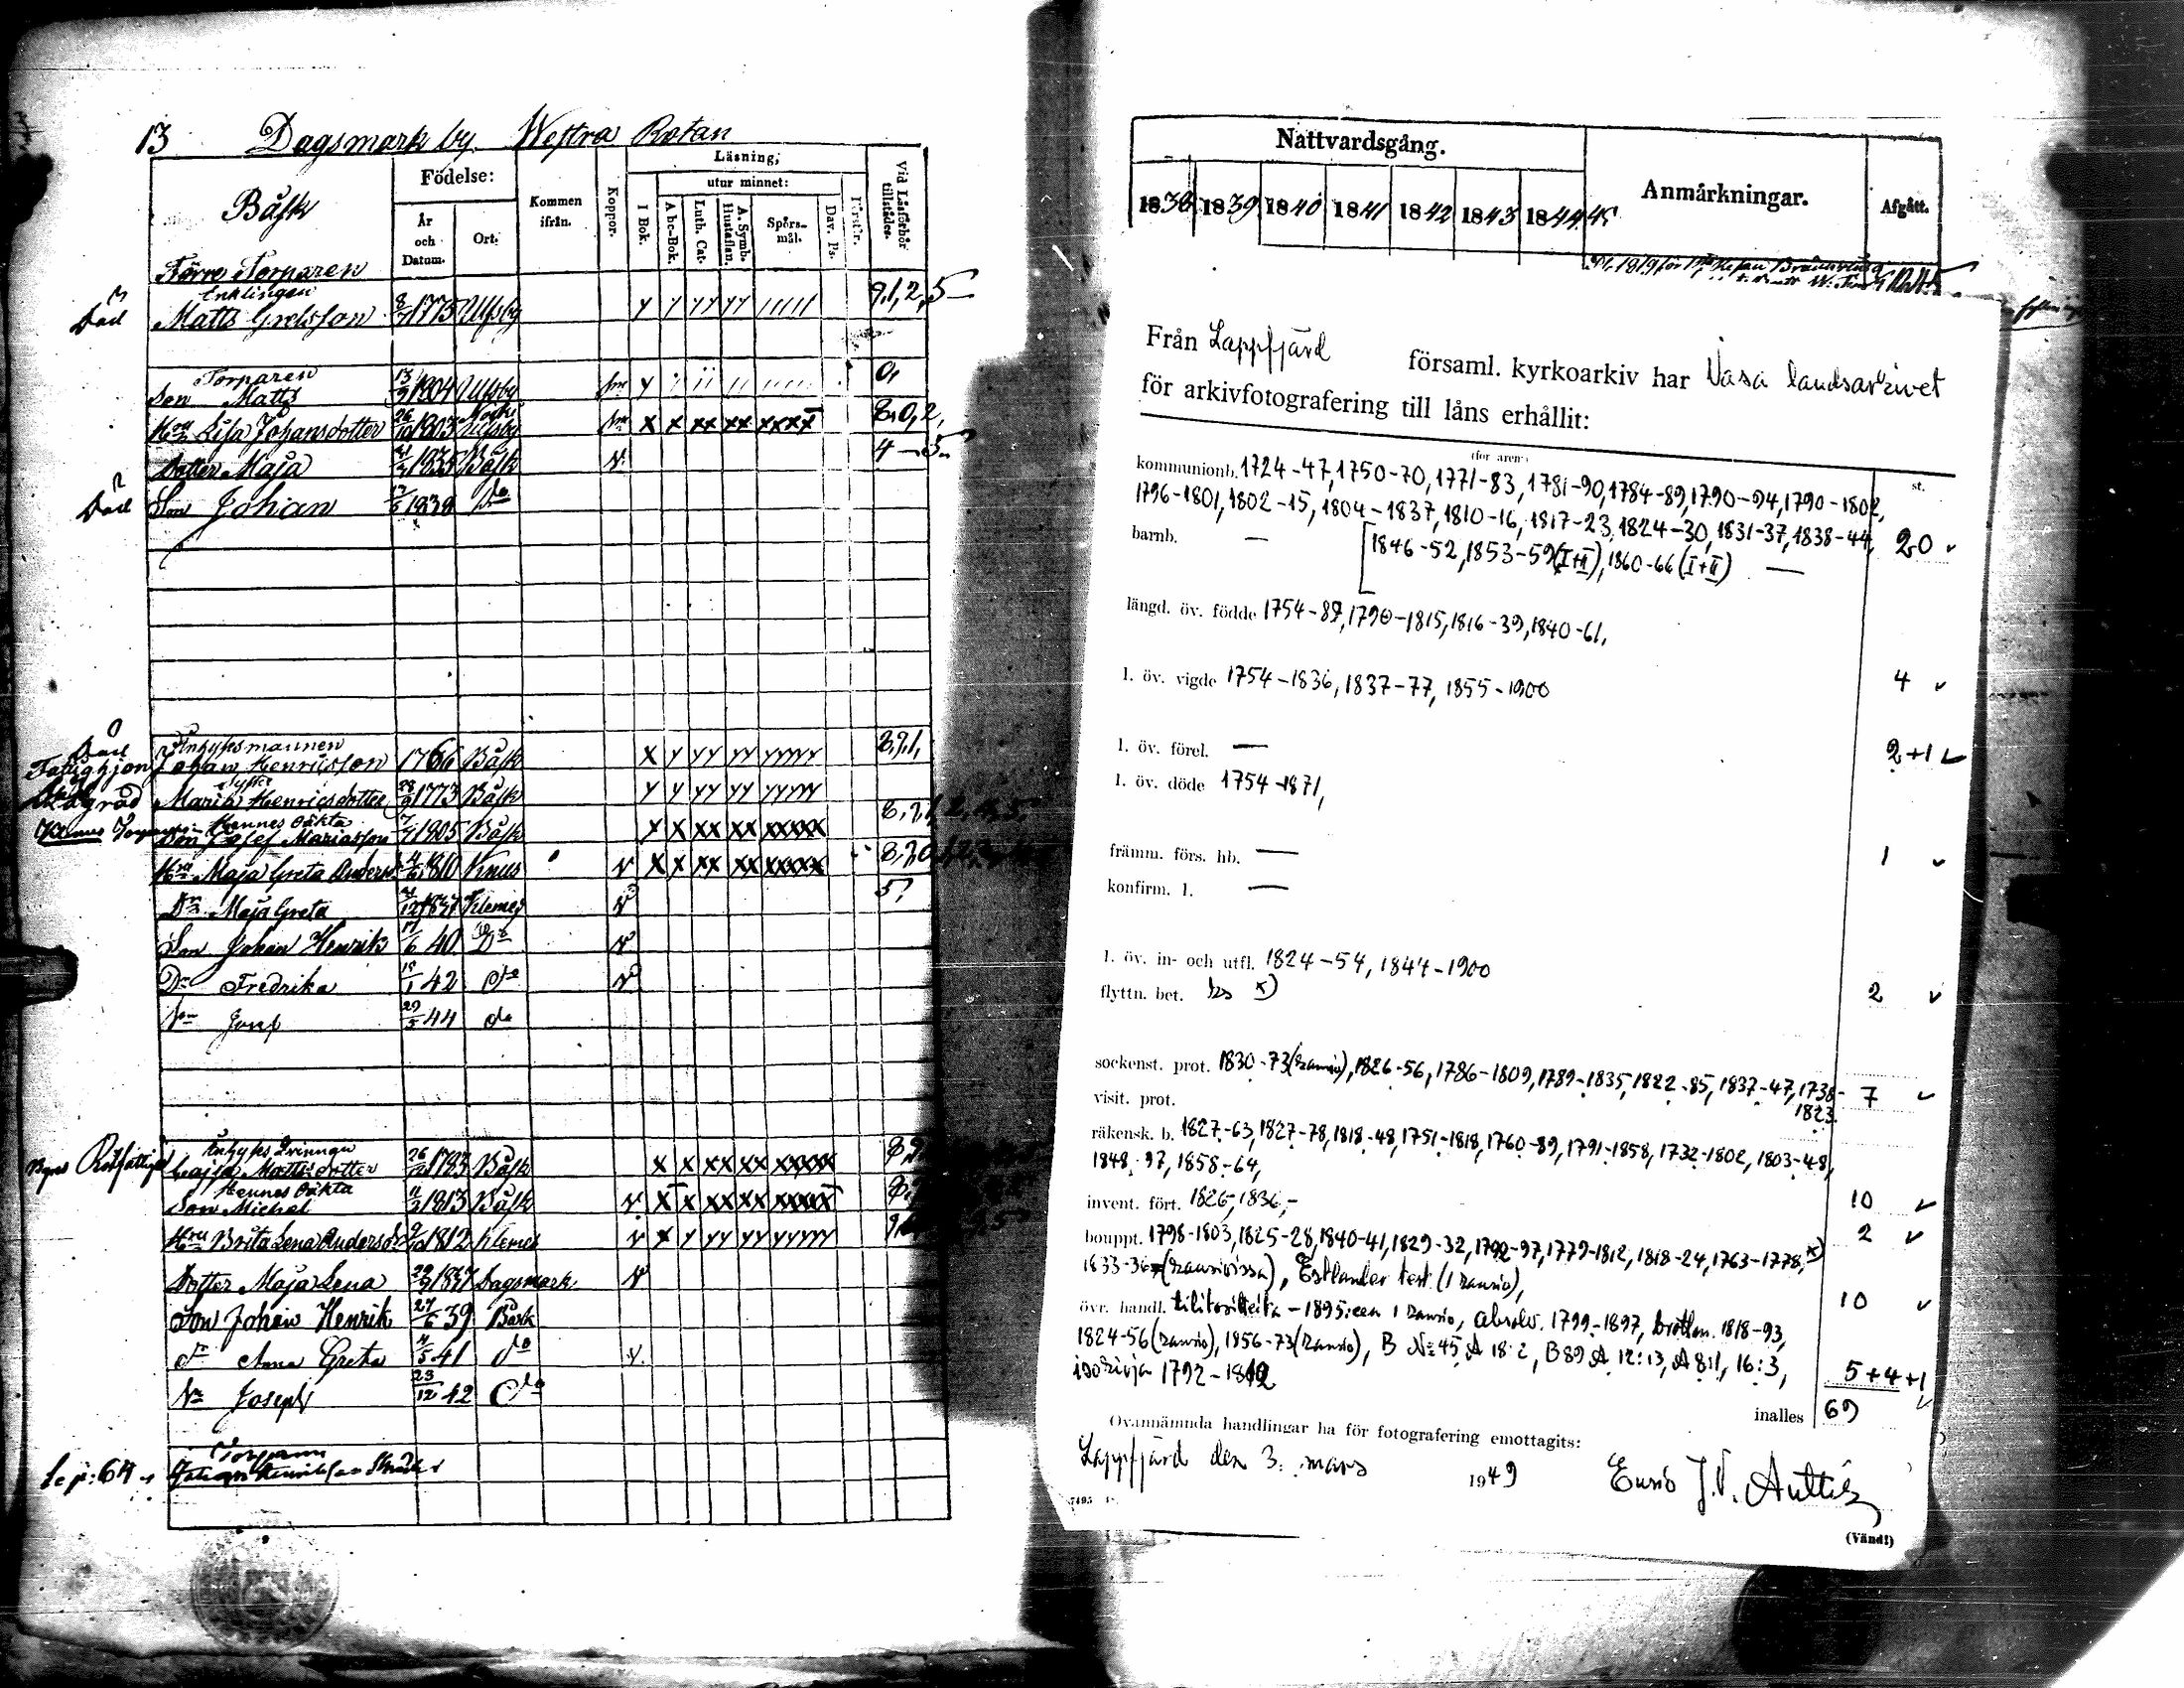 13 Dagsmark by. Westra Rotan
Båsk
Födelse:
År och Datum.
Ort.
Kommen ifrån.
Koppor.
Läsning,
utur minnet:
I Bok.
A bc-Bok.
Luth. Cat.
A. Symb. Hustaflan.
Spörs-mål.
Dav. Ps.
Förstår.
Vid Läsförhör tillstädes.
Förre Torparen
Enklingen
Död Matts Grelsson 8/7 1775 Ulfsby y / yy yy ///// 9,1,2,5
Torparen
Son Matts 13/9 1804 Ulfsby
Hru Lisa Johansdotter 26/10 1803 x x xx xx xxxx 8,0,2,
Dotter Maja 1835 Båsk 4-5
Död Son Johan 1838 Do
Inhysmannen
Död Johan Henricsson 1766 Båsk x y yy yy yyyyy 8,9,1,
Fattighjon
Syster
Maria Henricsdotter 28/9 1773 Båsk y y yy yy yyyyy
Hennes oäkta
Son Josef Mariasson 1805 Båsk y x xx xx xxxxx
Hru Maja Greta Anders 1810 Knus v x x xx xx xxxxx
Dr Maja Greta Klemes v 5
Son Johan Henrik 17/6 40 Do v
Dr Fredrika 42 do v
Sn Josef 29/5 44 do
Inhyses Qvinnan
Cajsa Mattsdotter 26/12 1783 Båsk x x xx xx xxxxx
Hennes oäkta
Son Michel 11/3 1813 Båsk v x x xx xx xxxxx
Hru Brita Lena Andersdr 9/10 1812 Klemes v x y yy yy yyyyy
Dotter Maja Lena 29/9 1837 Dagsmark v
Son Johan Henrik 27/6 39 Båsk
dr Anna Greta 4/5 41 do v.
Sn Joseph 23/12 42 do
Torparen
Se p: 64
Nattvardsgång.
1838 1839 1840 1841 1842 1843 1844 45
Anmärkningar.
Afgått.
Från Lappfjärd församl. kyrkoarkiv har Vasa landsarkivet
för arkivfotografering till låns erhållit:
(för åren)
st.
kommunionb. 1724-47, 1750-70, 1771-83, 1781-90, 1784-89, 1790-94, 1790-1802,
1796-1801, 1802-15, 1804-1837, 1810-16, 1817-23, 1824-30, 1831-37, 1838-44, 20 v
barnb. — [1846-52, 1853-59 (I+II), 1860-66 (I+II) —
längd. öv. födde 1754-89, 1790-1815, 1816-39, 1840-61,
4 v
l. öv. vigde 1754-1836, 1837-77, 1855-1900
2+1 v
l. öv. förel. —
l. öv. döde 1754-1871,
1 v
främm. förs. hb. —
konfirm. l. —
l. öv. in- och utfl. 1824-54, 1844-1900
2 v
flyttn. bet. ks x)
sockenst. prot. 1830-73 (kansio), 1826-56, 1786-1809, 1789-1835, 1822-85, 1837-47, 1738-1823. 7 v
visit. prot.
räkensk. b. 1827-63, 1827-78, 1818-48, 1751-1818, 1760-89, 1791-1858, 1732-1802, 1803-48,
1848-97, 1858-64,
10 v
invent. fört. 1826, 1836,-
2 v
bouppt. 1798-1803, 1825-28, 1840-41, 1829-32, 1792-97, 1779-1812, 1818-24, 1763-1778, x)
1833-36 (kansioissa), Estlander test. (1 kansio),
10 v
övr. handl. tilitositteita -1895:een 1 kansio, absolv. 1799-1897, brottm. 1818-93,
1824-56 (kansio), 1856-73 (kansio), B No 45, A 18:2, B 89 A 12:13, A 8:1, 16:3,
isorivja 1792-1812
5+4+1 v
inalles 69
Ovannämnda handlingar ha för fotografering emottagits:
Lappfjärd den 3. mars 1949
(Vänd!)